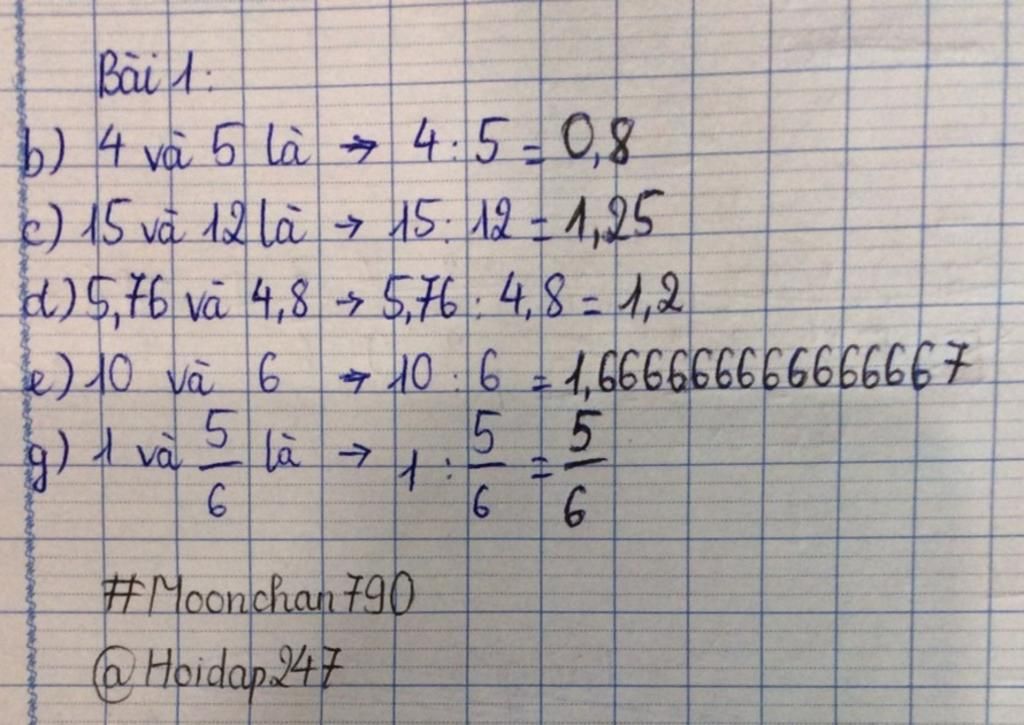 Bài 1:
b) 4 và 5 là → 4 : 5 = 0,8
c) 15 và 12 là → 15 : 12 = 1,25
d) 5,76 và 4,8 → 5,76 : 4,8 = 1,2
e) 10 và 6 → 10 : 6 = 1,666666666666667
g) 1 và 5/6 là → 1 : 5/6 = 5/6
#Moonchan790
@Hoidap247